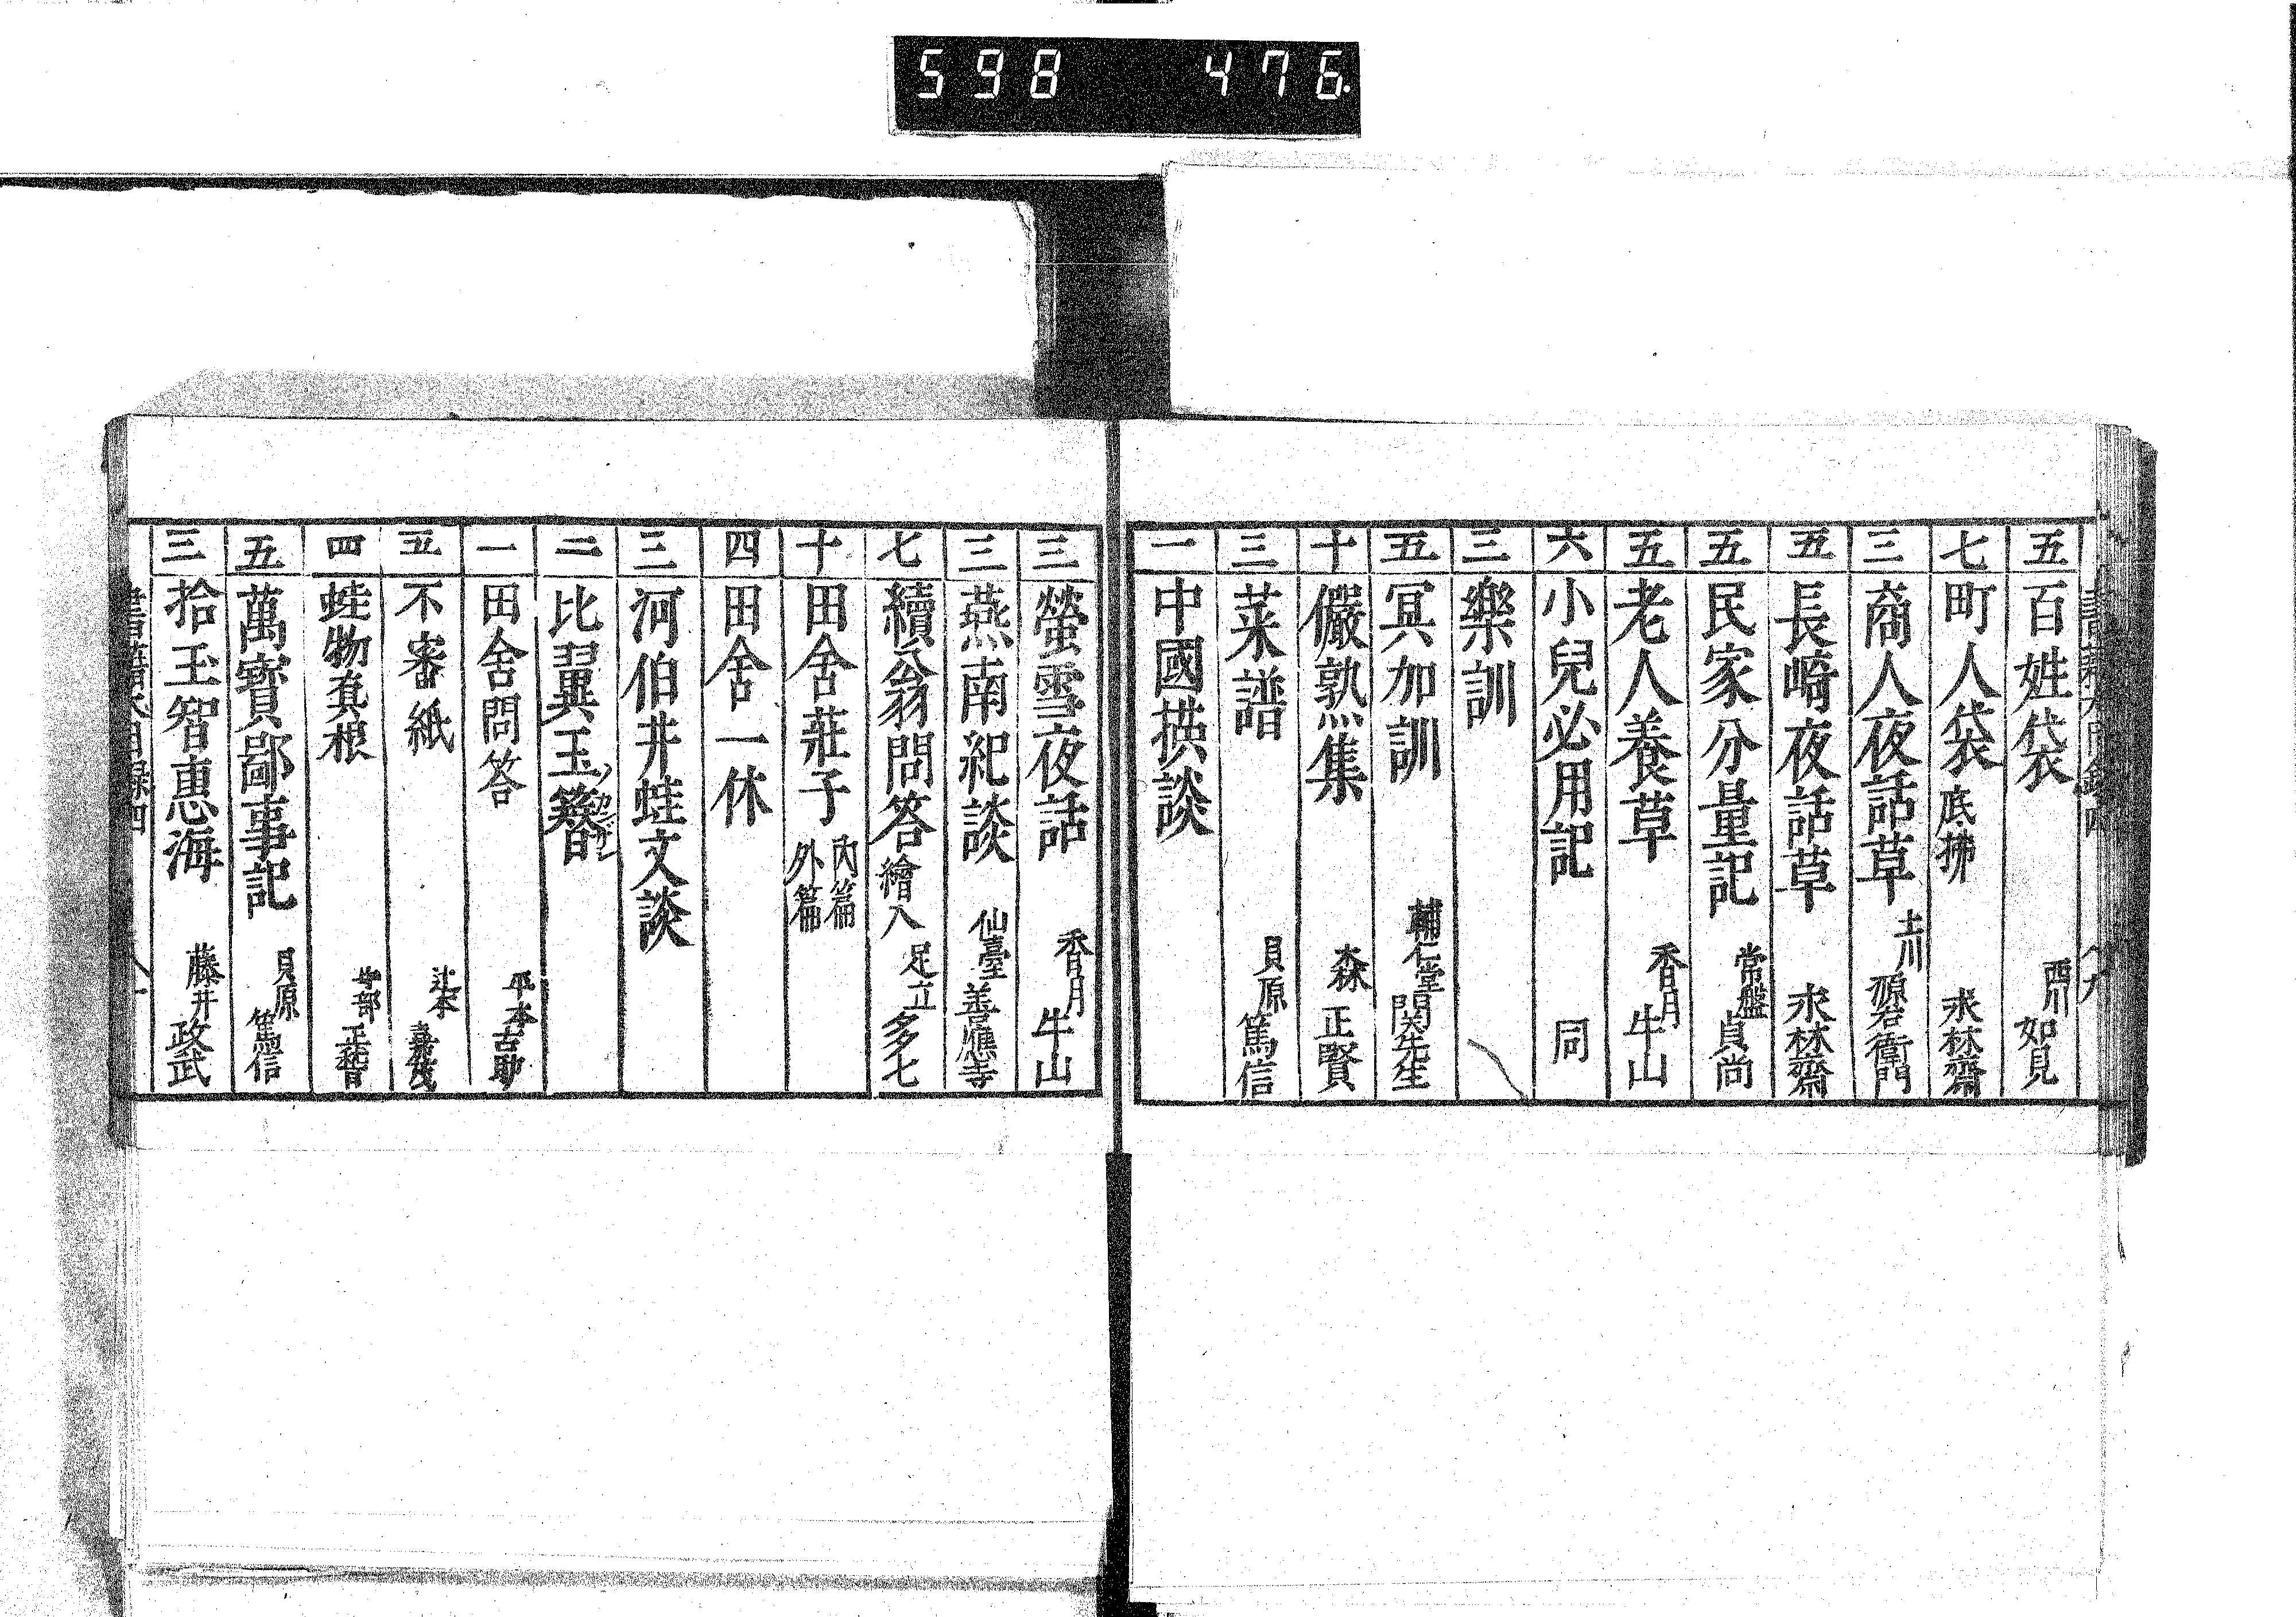 598 476
五 百姓袋 西川 如見
七 町人袋 底拂 求林齋
三 商人夜話草 土川 源右衛門
五 長崎夜話草 求林齋
五 民家分量記 常盤 貞尚
五 老人養草 香月 牛山
六 小兒必用記 同
三 樂訓
五 冥加訓 輔仁堂 関先生
十 儼塾集 森 正賢
三 菜譜 貝原 篤信
一 中國 談
三 螢雪夜話 香月 牛山
三 燕南紀談 仙臺 善應寺
七 續翁問答 繪入 足立 多七
十 田舍莊子 内篇 外篇
四 田舍一休
三 河伯井蛙文談
二 比翼玉簪
一 田舍問答 平本 古助
五 不審紙 辻本 嘉茂
四 蛙物真根 正智
五 萬寶鄙事記 貝原 篤信
三 拾玉智惠海 藤井 政武